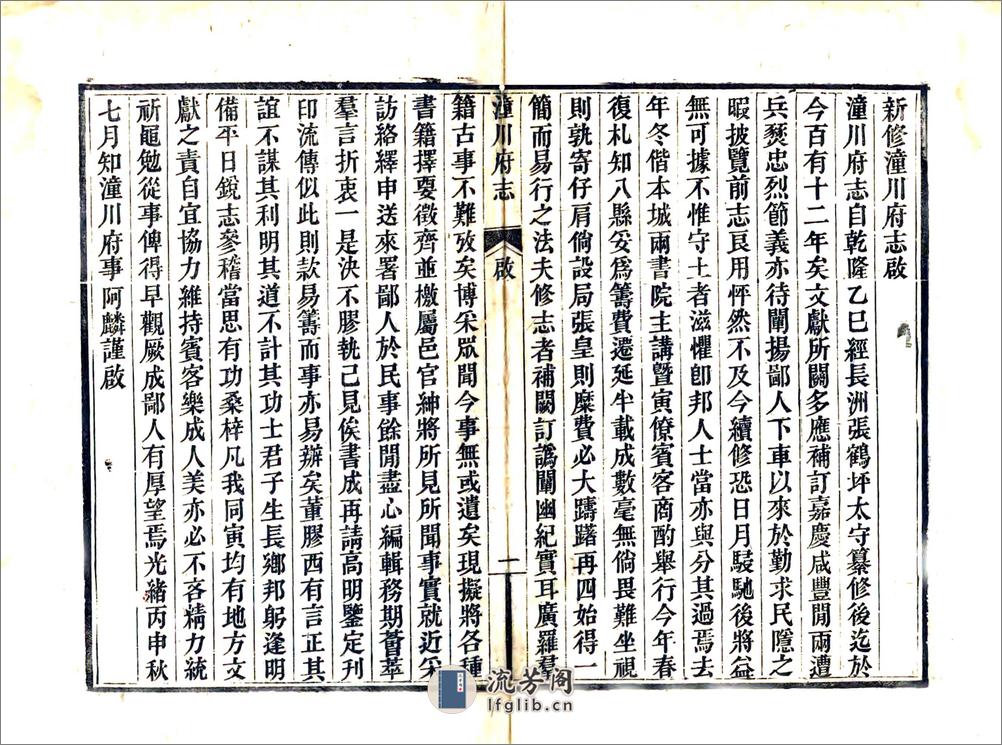 新修潼川府志啟
潼川府志自乾隆乙巳經長洲張鶴坪太守纂修後迄於
今百有十二年矣文獻所關多應補訂嘉慶咸豐閒兩遭
兵燹忠烈節義亦待闡揚鄙人下車以來於勤求民隱之
暇披覽前志良用怦然不及今續修恐日月駸馳後將益
無可據不惟守土者滋懼卽邦人士當亦與分其過焉去
年冬偕本城兩書院主講曁寅僚賓客商酌舉行今年春
復札知八縣妥爲籌費遷延半載成數毫無倘畏難坐視
則孰寄仔肩倘設局張皇則糜費必大躊躇再四始得一
簡而易行之法夫修志者補闕訂譌闡幽紀實耳廣羅羣
潼川府志
啟
一
籍古事不難攷矣博采眾聞今事無或遺矣現擬將各種
書籍擇要徵齊並檄屬邑官紳將所見所聞事實就近采
訪絡繹申送來署鄙人於民事餘閒盡心編輯務期薈萃
羣言折衷一是決不膠執己見俟書成再請高明鑒定刊
印流傳似此則款易籌而事亦易辦矣董膠西有言正其
誼不謀其利明其道不計其功士君子生長鄉邦躬逢明
備平日銳志參稽當思有功桑梓凡我同寅均有地方文
獻之責自宜協力維持賓客樂成人美亦必不吝精力統
祈黽勉從事俾得早觀厥成鄙人有厚望焉光緒丙申秋
七月知潼川府事阿麟謹啟
流芳阁
lfglib.cn